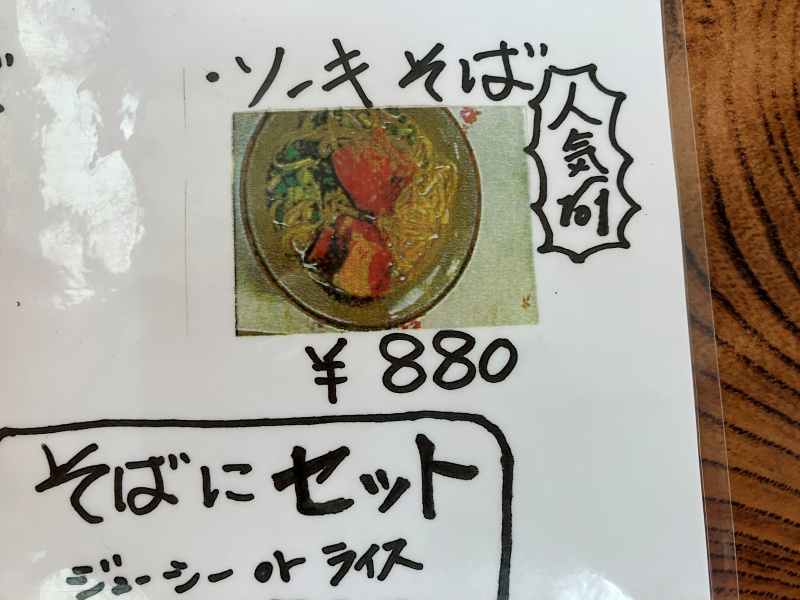 ・ソーキそば
人気No1
¥880
そばにセット
ジューシー or ライス